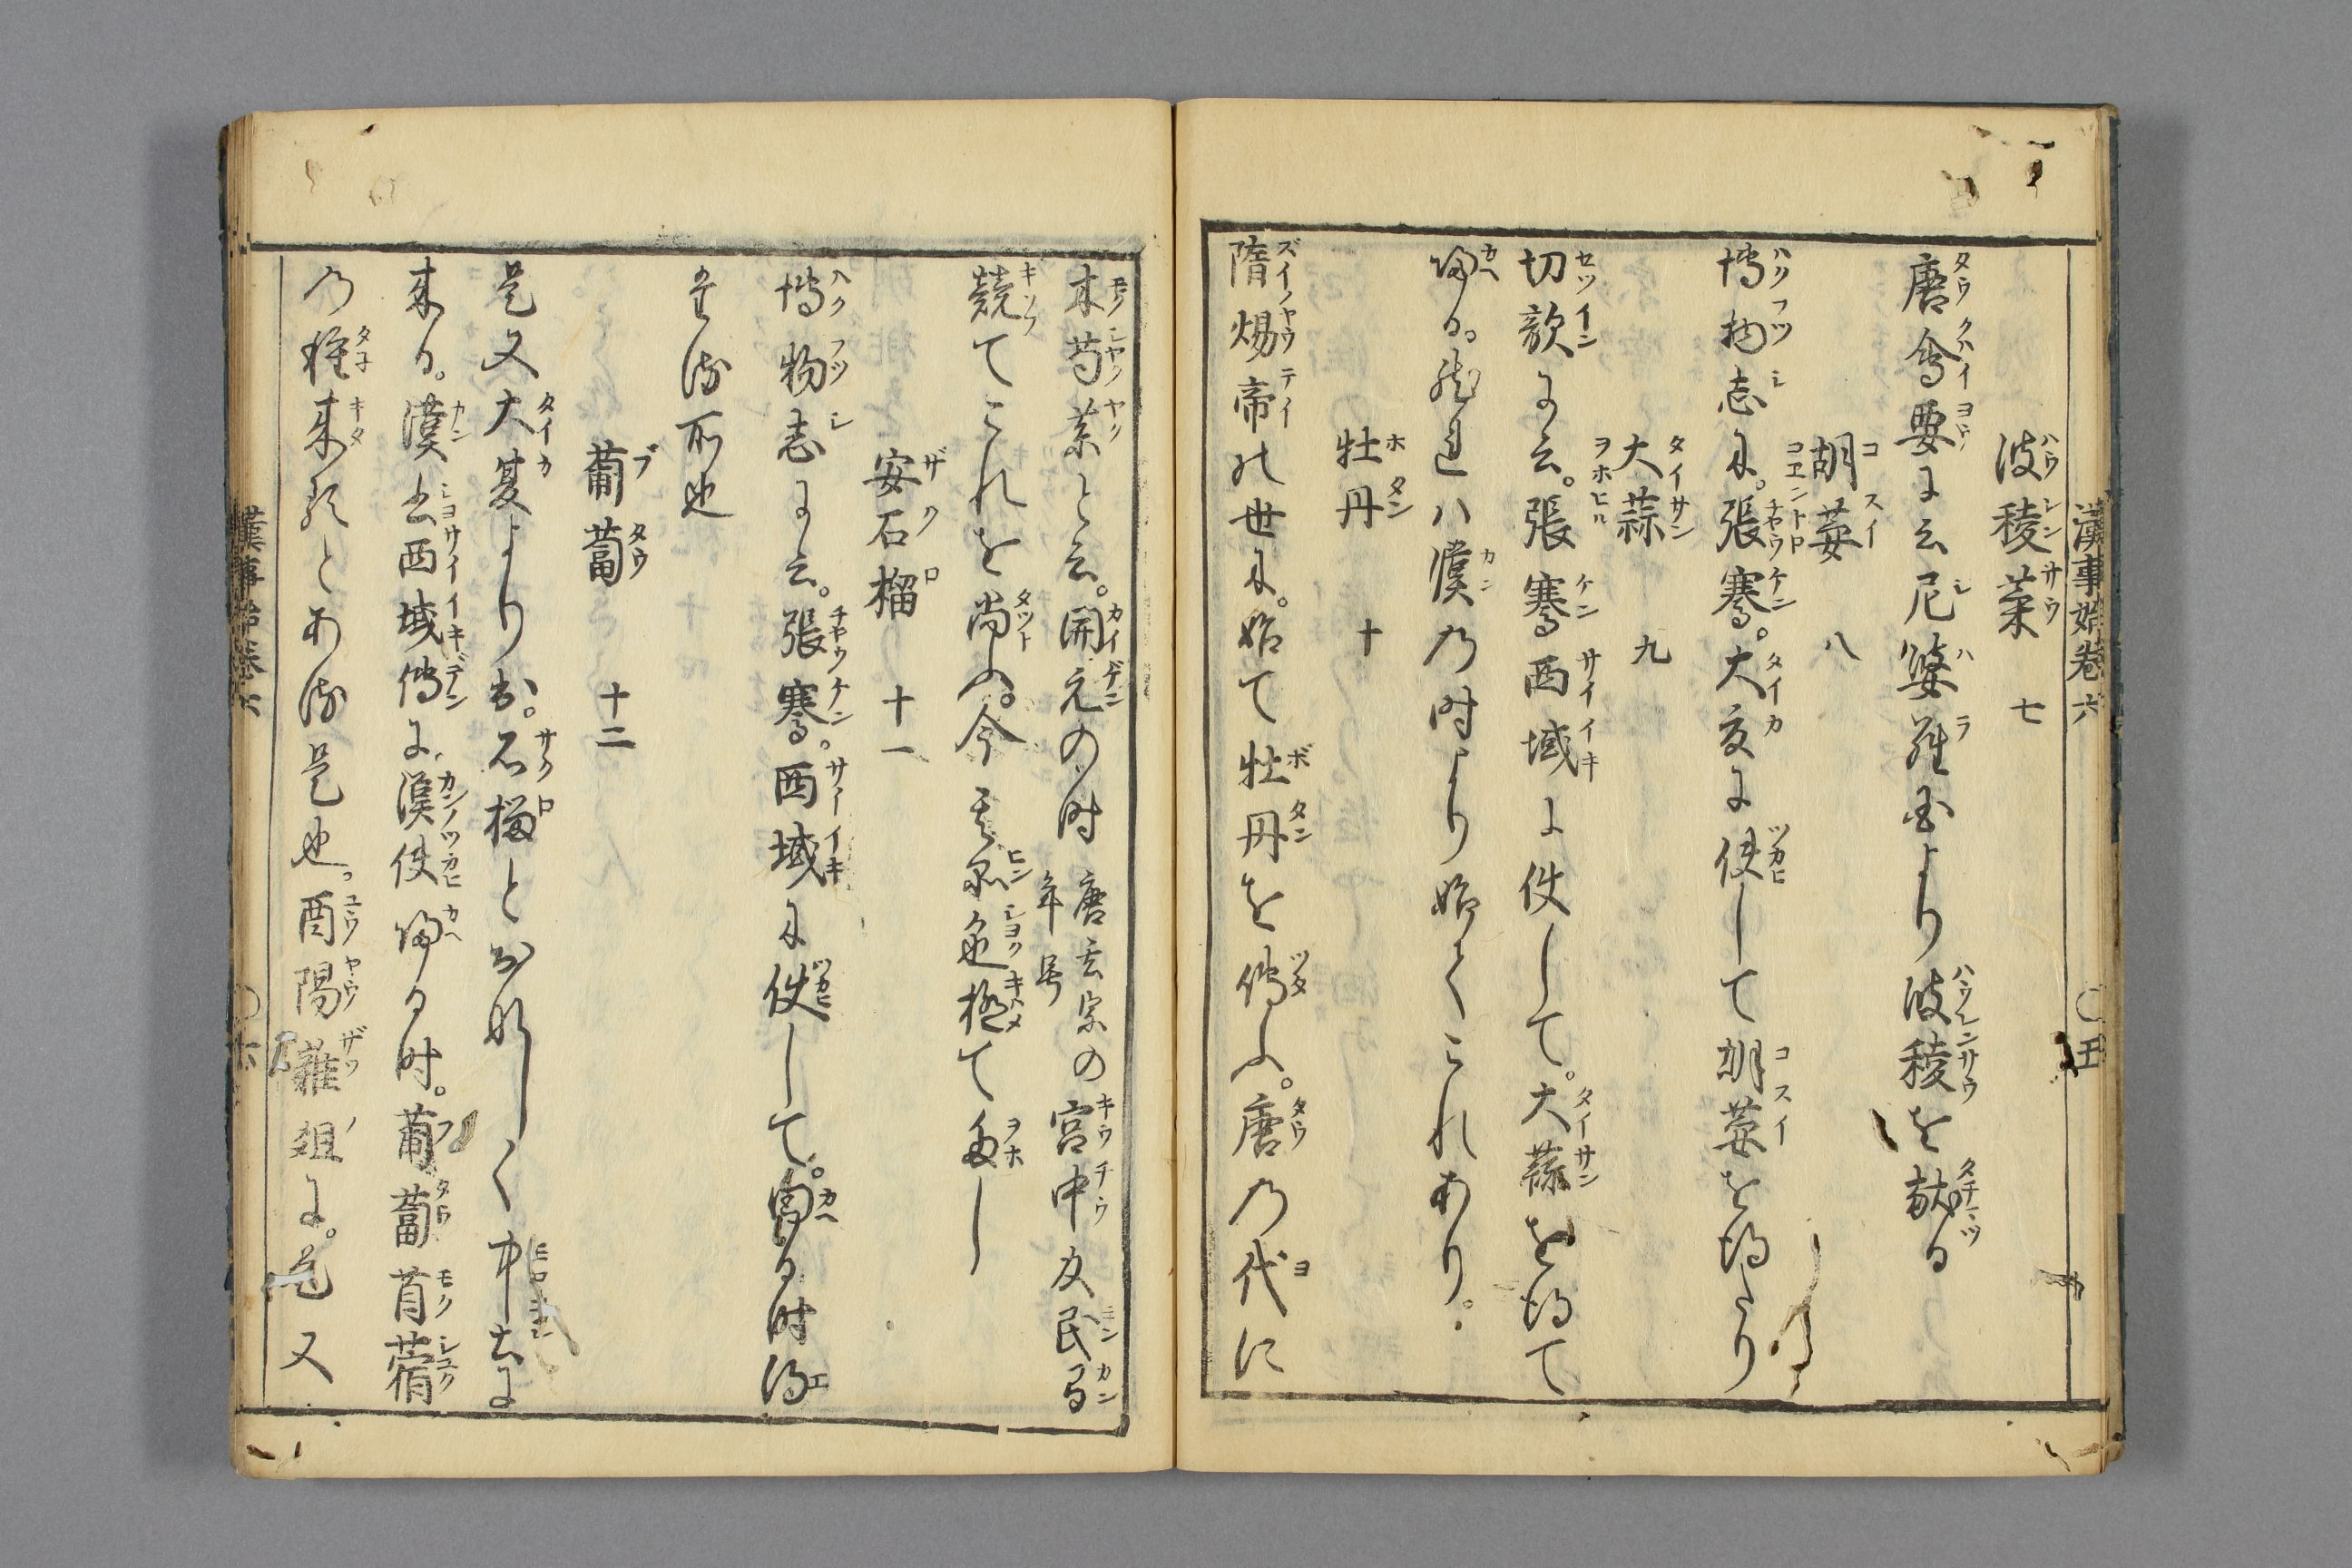 漢事始巻六　〇五
波稜菜　七
唐會要に云尼婆羅国より波稜を献る
胡荽　八
博物志に。張騫。大夏に使して胡荽を得たり
大蒜　九
切韻に云。張騫西域に使して。大蒜を得て
帰る。然れハ漢の時より始てこれあり。
牡丹　十
隋煬帝の世に。始て牡丹を傳ふ。唐の代に
木芍薬と云。開元の時 唐玄宗の年号 宮中及民間
競てこれを尚ふ。今其品色極て多し
安石榴　十一
博物志に云。張騫。西域に使して。帰る時得
来る所也
葡萄　十二
是又大夏より出。石榴とおなしく
来る。漢書西域傳に漢使帰る時。葡萄苜蓿
の種来るとある是也。酉陽雜俎に。是又
漢事始巻六　〇六